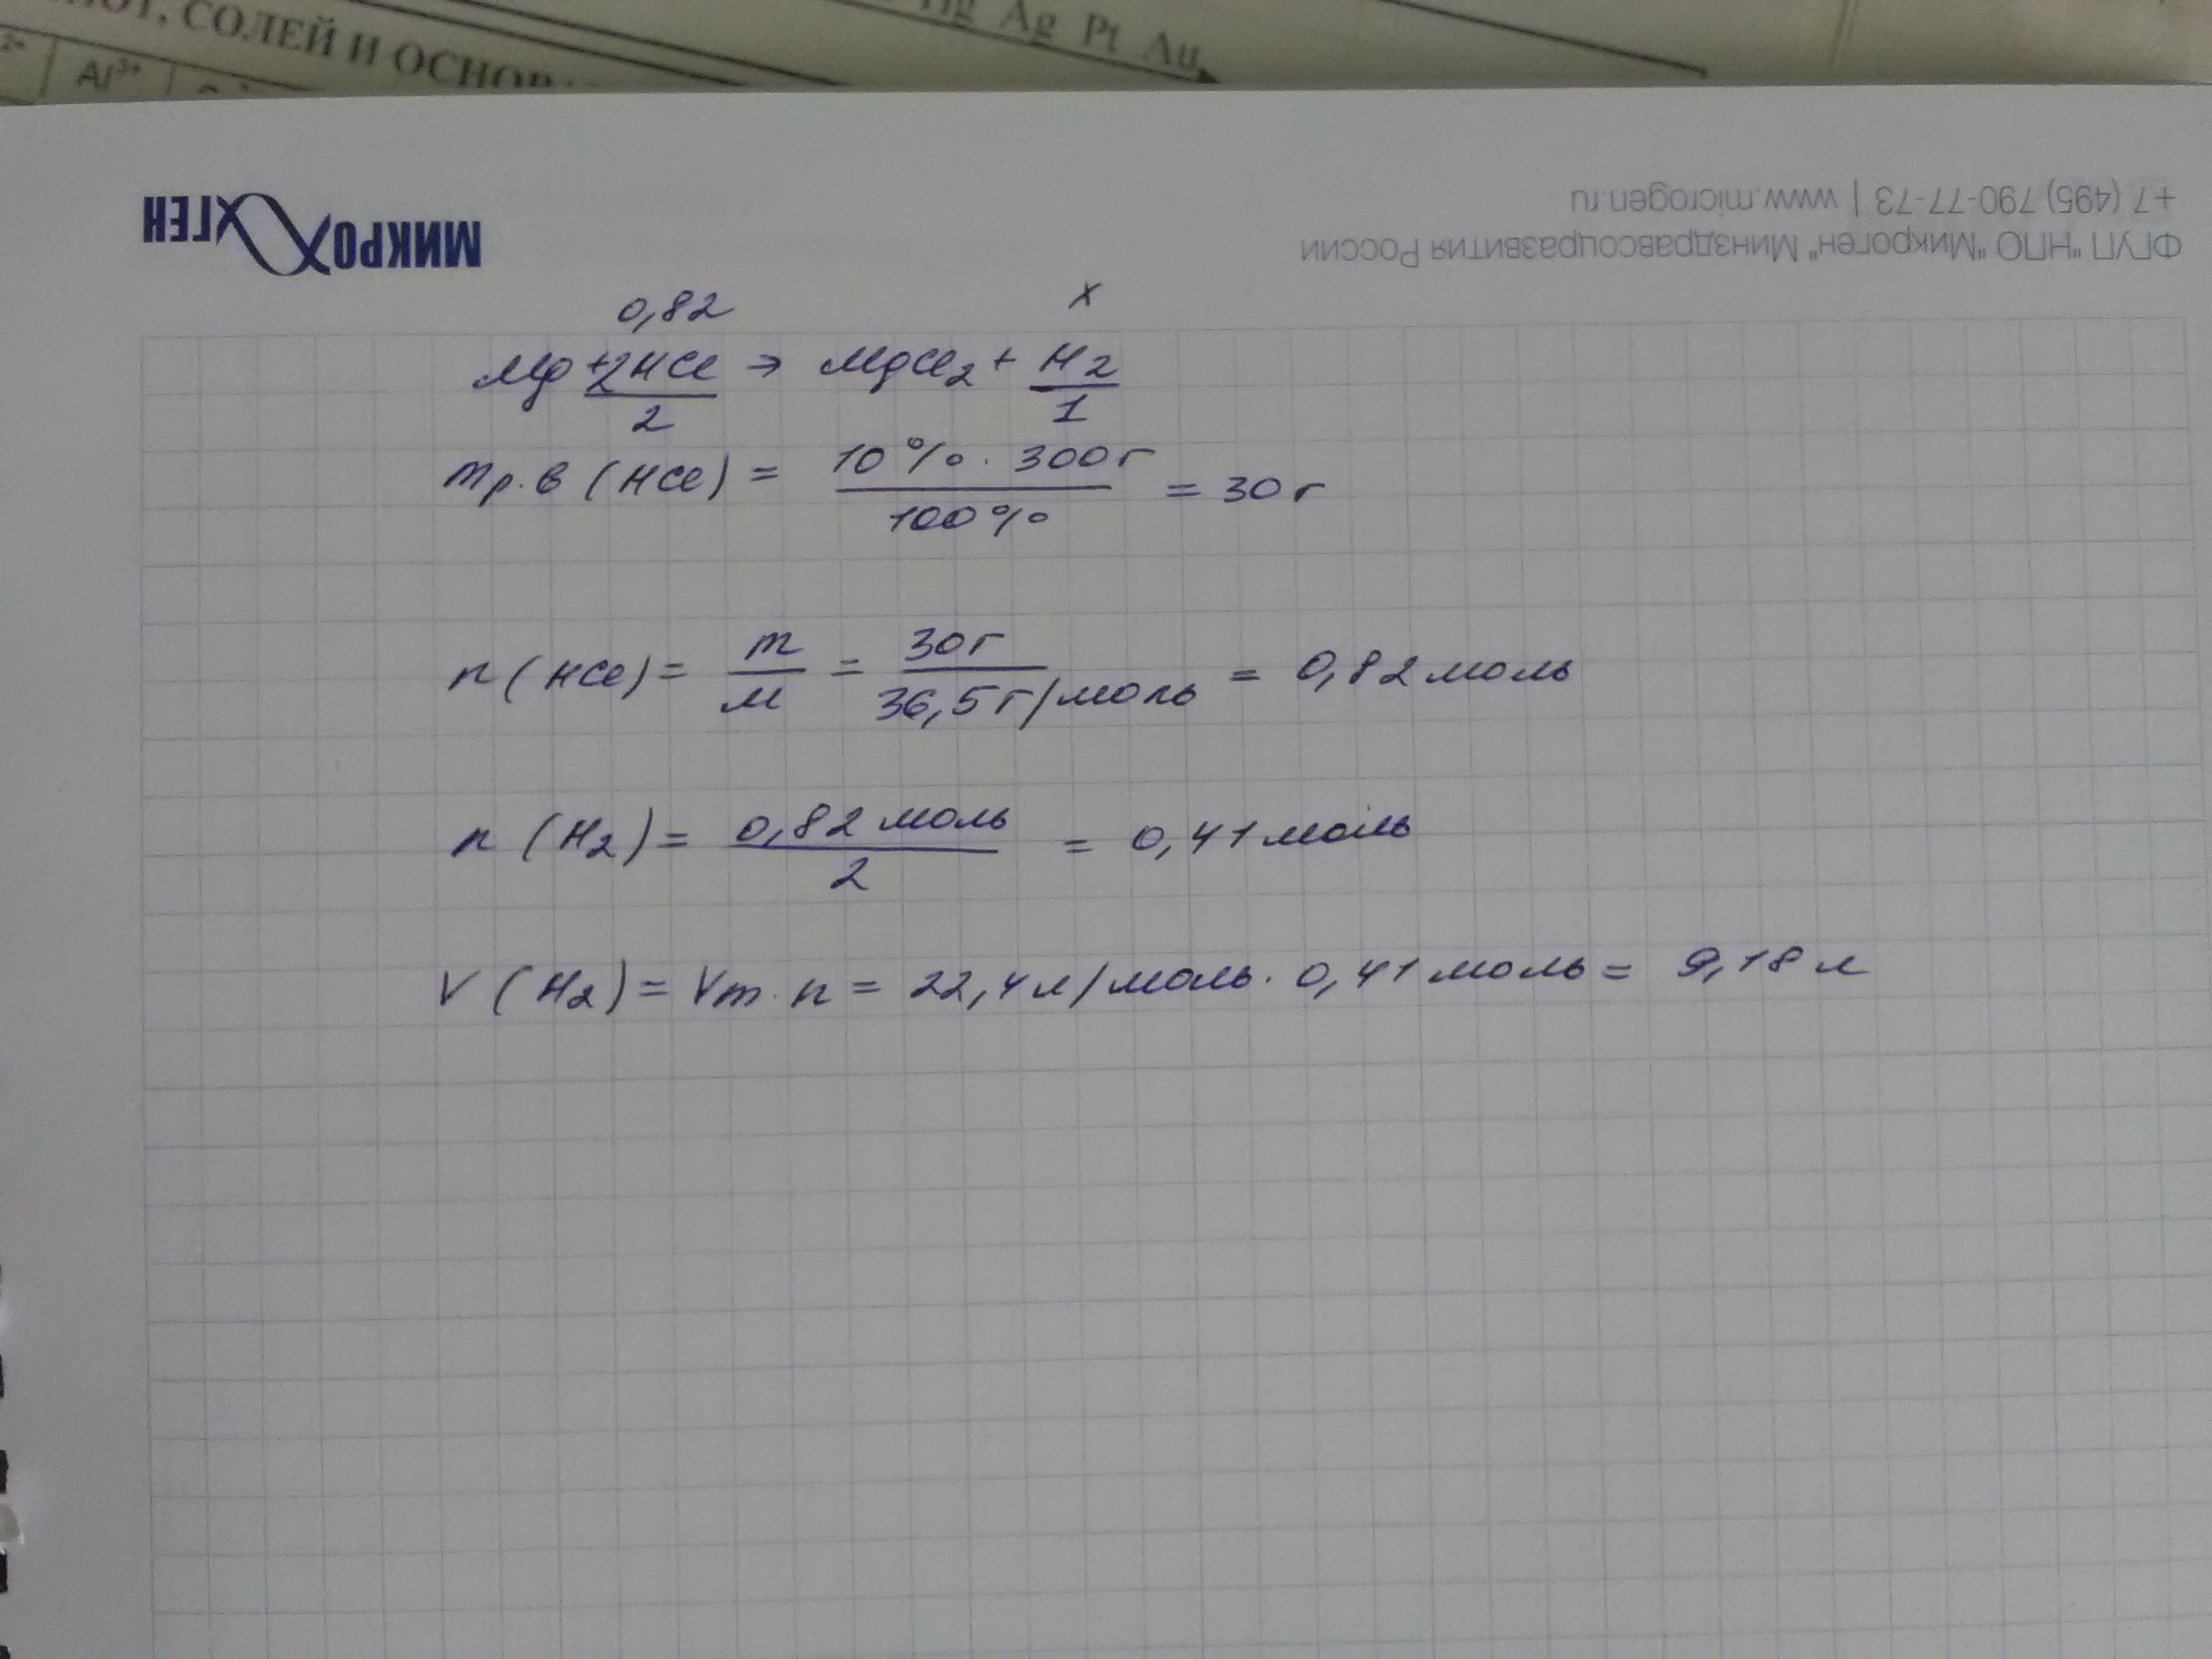 Hg Ag Pt Au
, СОЛЕЙ И ОСНОВ
2+ Al³⁺
МИКРОГЕН
ФГУП "НПО "Микроген" Минздравсоцразвития России
+7 (495) 790-77-73 | www.microgen.ru
0,82 x
Mg + 2HCl → MgCl₂ + H₂
2 1
mр.в (HCl) = 10% · 300г / 100% = 30 г
n (HCl) = m / M = 30г / 36,5 г/моль = 0,82 моль
n (H₂) = 0,82 моль / 2 = 0,41 моль
V (H₂) = Vm · n = 22,4 л/моль · 0,41 моль = 9,18 л